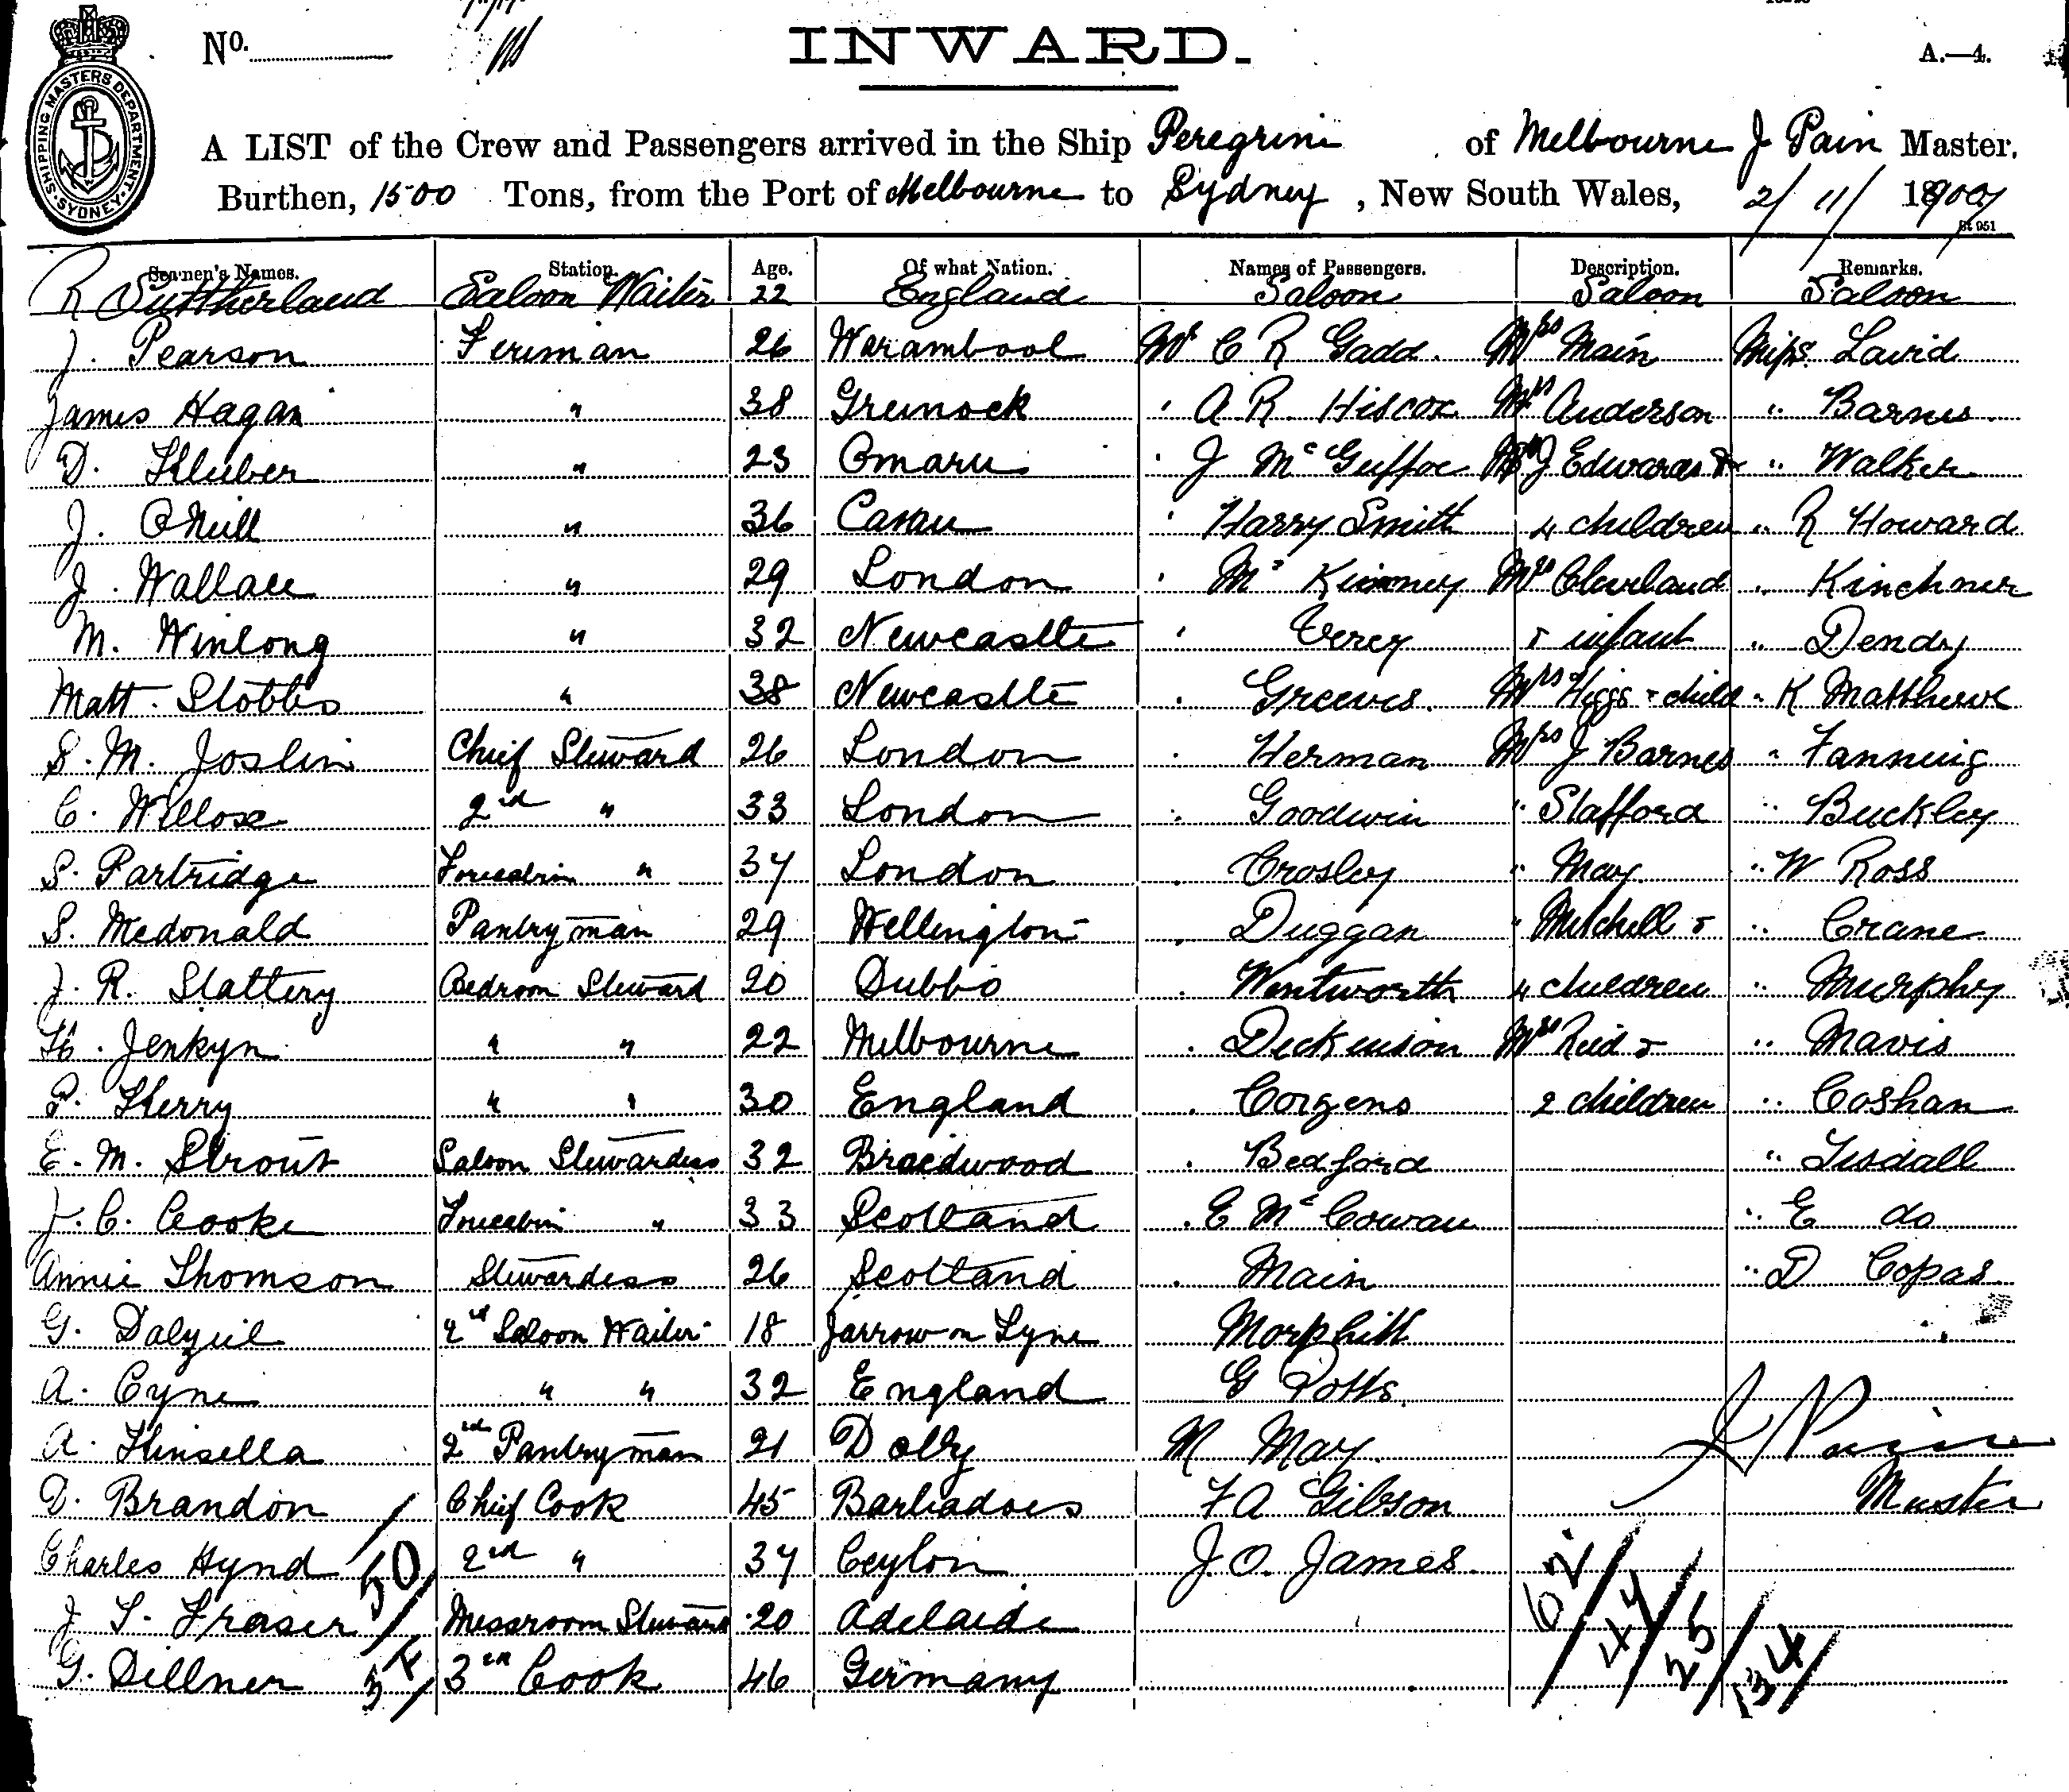 No.
INWARD.
A.—4.
SHIPPING MASTERS DEPARTMENT. SYDNEY.
A LIST of the Crew and Passengers arrived in the Ship Peregrine of Melbourne J Pain Master,
Burthen, 1500 Tons, from the Port of Melbourne to Sydney, New South Wales, 2/11/1900
St 951
Seamen's Names. Station. Age. Of what Nation. Names of Passengers. Description. Remarks.
R Suttherland Saloon Waiter 22 England Saloon Saloon Saloon
J. Pearson Fireman 26 Warambool Mr C R Gadd. Mrs Main Miss David
James Hagan " 38 Greenock " A R. Hiscox Mrs Anderson " Barnes
D. Kluber " 23 Omaru " J McGuffoc Mrs J Edwards & " Walker
J. O'Neill " 36 Cavan " Harry Smith 4 children " R Howard
J. Wallace " 29 London " Mc Kinney Mrs Cleveland " Kinchner
M. Winlong " 32 Newcastle " Verey & infant " Dendy
Matt. Stobbs " 38 Newcastle " Greeves. Mrs Higgs & child " K Matthews
S. M. Joslin Chief Steward 26 London " Herman Mrs J Barnes " Fanning
C. Willox 2nd " 33 London " Goodwin " Stafford " Buckley
S. Partridge Forecabin " 37 London " Crosley " May " W Ross
S. Mcdonald Pantryman 29 Wellington " Duggan " Mitchell & " Crane
J. R. Slattery Bedroom Steward 20 Dubbo " Wentworth 4 children " Murphy
H. Jenkyn " " 22 Melbourne " Dickenson Mrs Reid & " Mavis
P. Kerry " " 30 England " Corzens 2 children " Coshan
E. M. Strout Saloon Stewardess 32 Braedwood " Bedford " Tisdall
J. C. Cooke Forecabin " 33 Scotland " E McCowan " E do
Annie Thomson Stewardess 26 Scotland " Main " D Copas
G. Dalziel 2nd Saloon Waiter 18 Jarrow on Tyne Morphitt
A. Cyne " " 32 England G Potts
A. Kinsella 2nd Pantryman 21 Dolly M May. J Pain
D. Brandon Chief Cook 45 Barbadoes F A Gibson Master
Charles Hynd 2nd " 37 Ceylon J. O. James.
50
J T. Fraser Messroom Steward 20 Adelaide
62 44 25 134
G. Dillner 3rd Cook 46 Germany